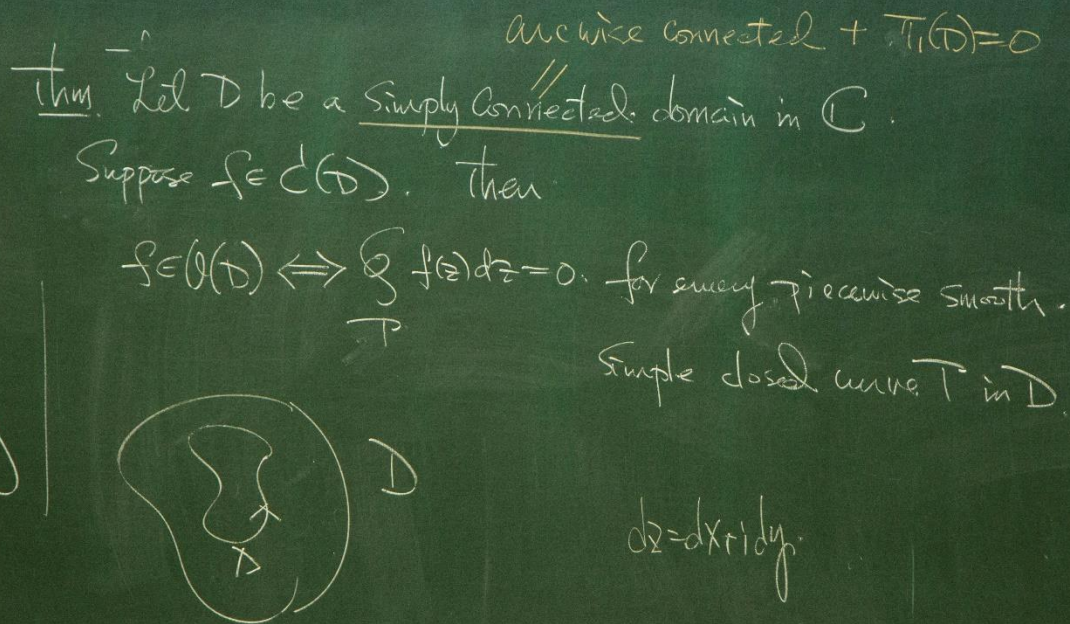 arcwise connected + π₁(D)=0
Thm. Let D be a Simply Connected domain in ℂ.
Suppose f∈C¹(D). Then
f∈O(D) ⟺ ∮ f(z)dz=0. for every piecewise smooth.
Γ
Simple closed curve Γ in D.
D
Γ
dz=dx+idy.